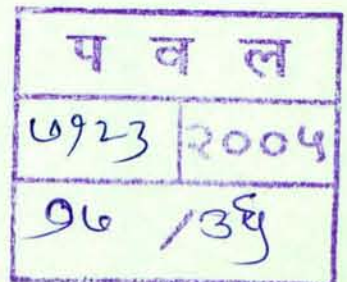 प व ल
७१२३ २००५
१७ /